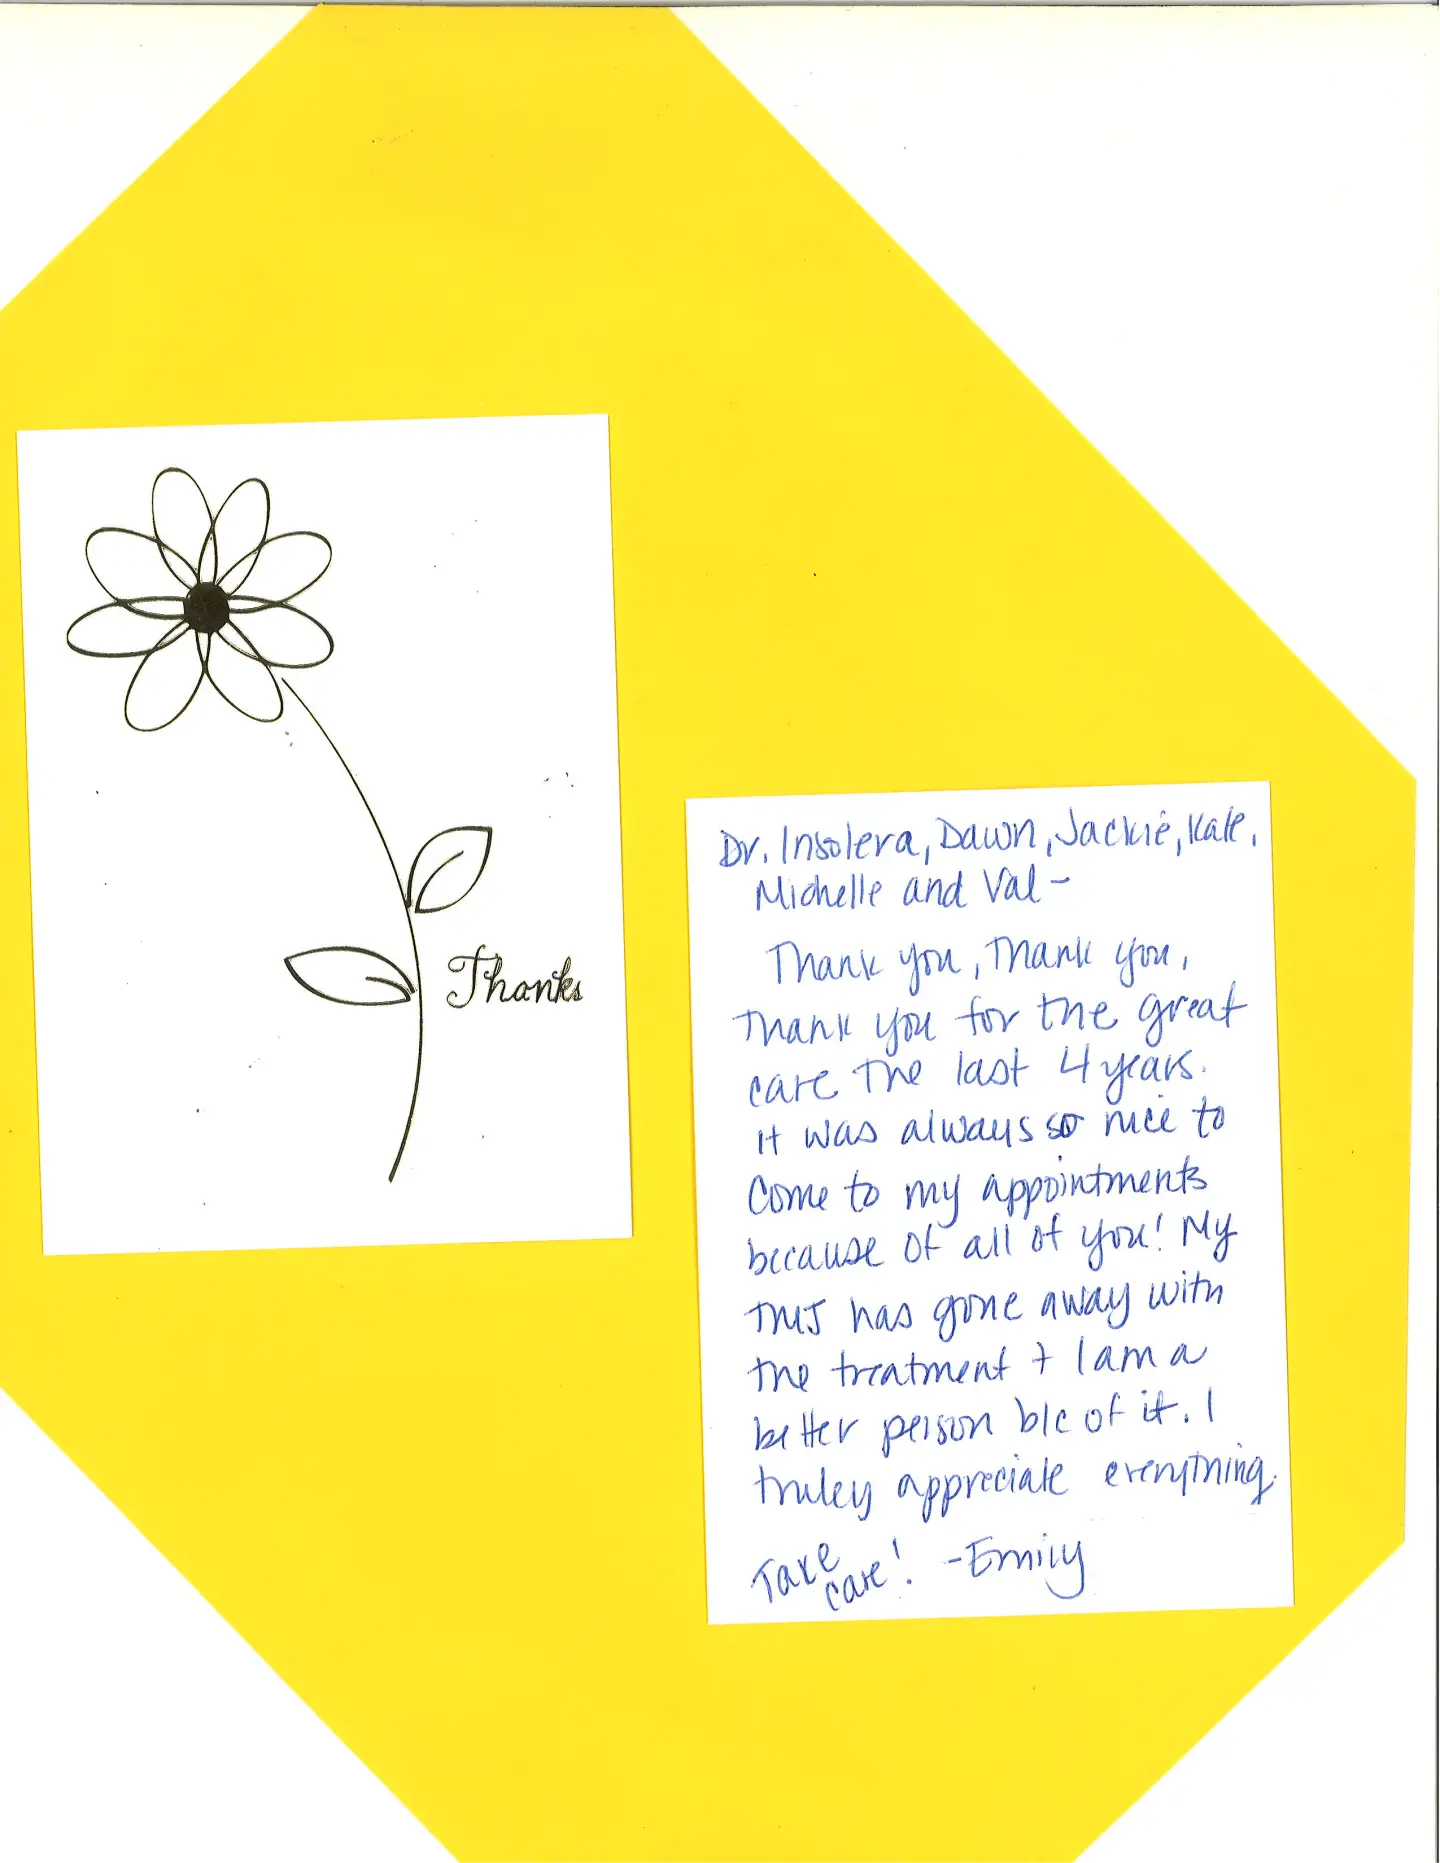 Thanks
Dr. Insolera, Dawn, Jackie, Kate,
Michelle and Val-
Thank you, Thank you,
Thank you for the great
care the last 4 years.
It was always so nice to
come to my appointments
because of all of you! My
TMJ has gone away with
the treatment + I am a
better person b/c of it. I
truley appreciate everything.
Take
care! -Emily